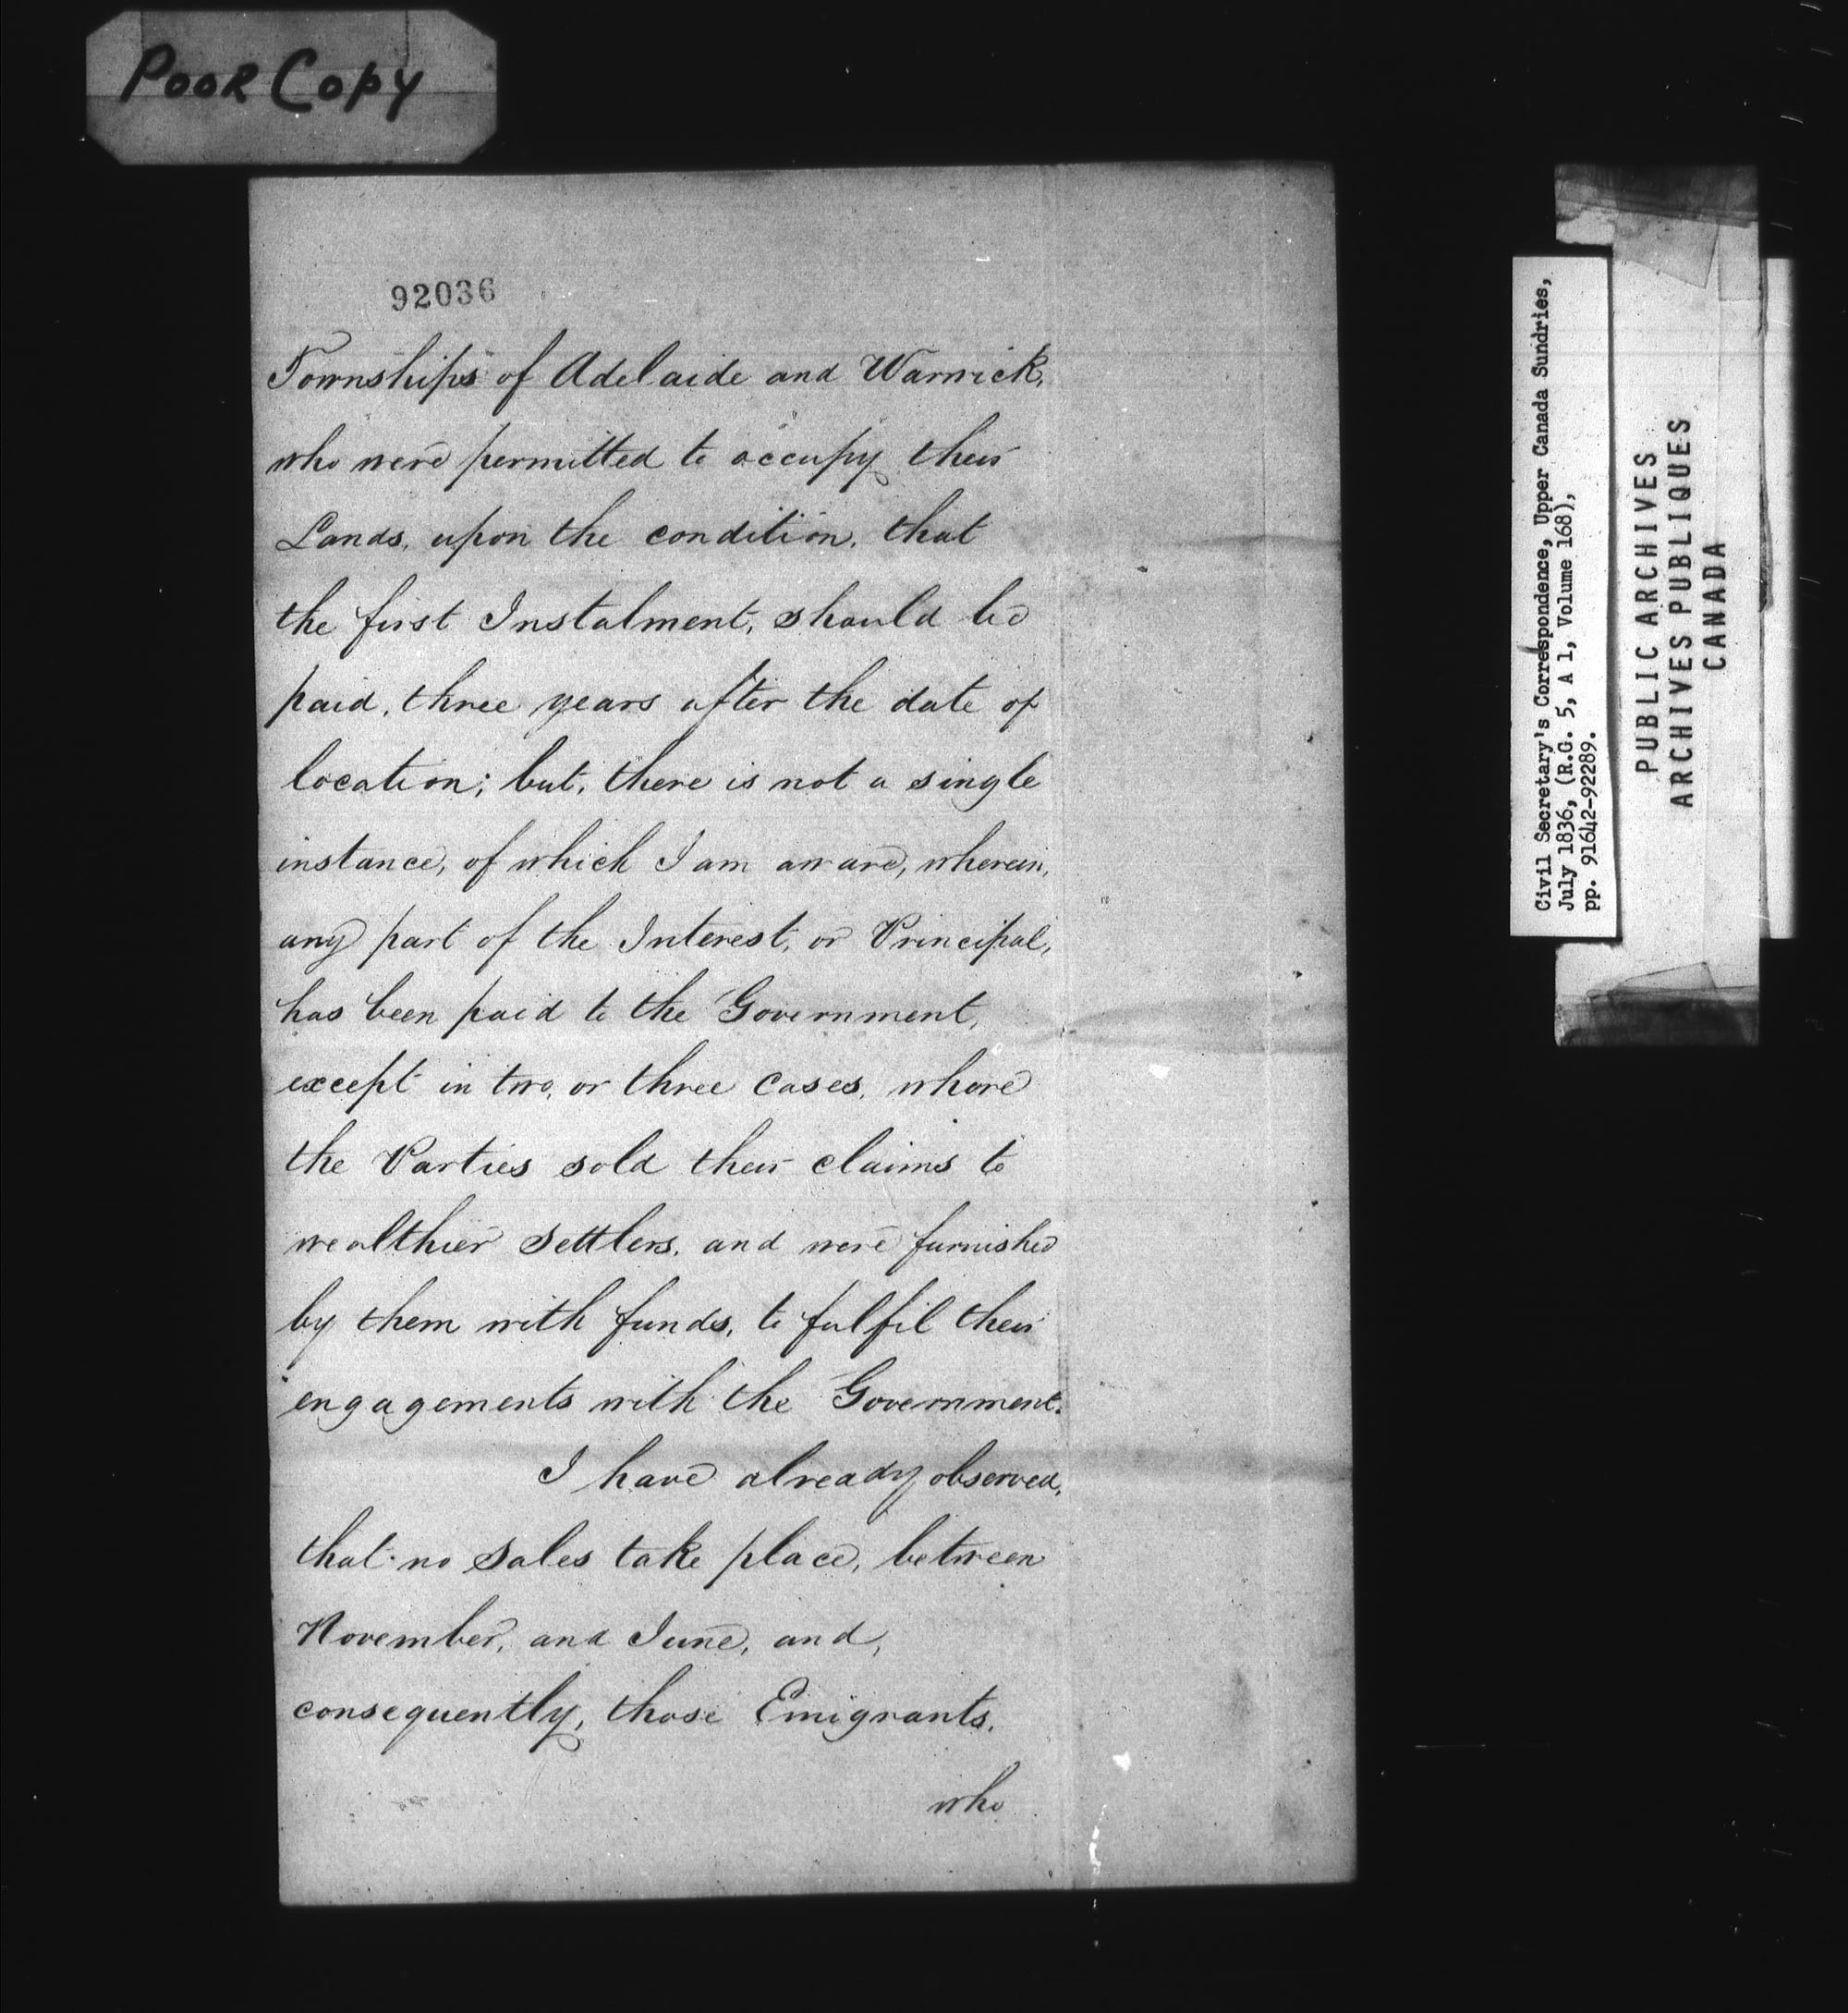 Poor Copy
92036
Townships of Adelaide and Warwick,
who were permitted to occupy their
Lands, upon the condition, that
the first Instalment, should be
paid, three years after the date of
location; but, there is not a single
instance, of which I am aware, wherein,
any part of the Interest, or Principal,
has been paid to the Government,
except in two, or three cases, where
the Parties sold their claims to
wealthier Settlers, and were furnished
by them with funds, to fulfil their
engagements with the Government.
I have already observed,
that no Sales take place, between
November, and June, and,
consequently, those Emigrants,
who
Civil Secretary's Correspondence, Upper Canada Sundries,
July 1836, (R.G. 5, A 1, Volume 168),
pp. 91642-92289.
PUBLIC ARCHIVES
ARCHIVES PUBLIQUES
CANADA